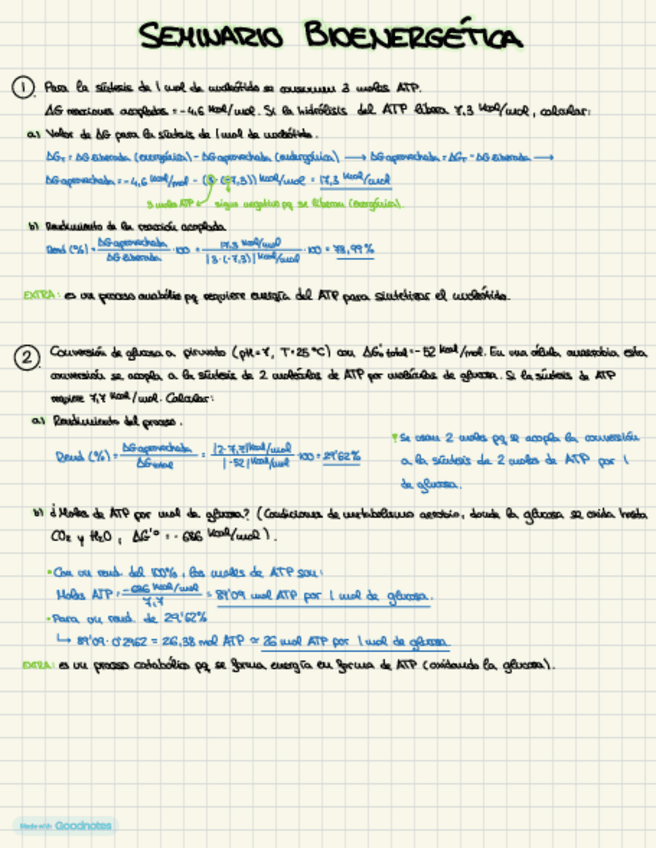 SEMINARIO BIOENERGÉTICA
1 Para la síntesis de 1 mol de nucleótido se consumen 3 moles ATP.
ΔG reacciones acopladas = -4,6 Kcal/mol. Si la hidrólisis del ATP libera 7,3 Kcal/mol, calcular:
a) Valor de ΔG para la síntesis de 1 mol de nucleótido.
ΔGT = ΔG liberada (exergónica) - ΔG aprovechada (endergónica) → ΔG aprovechada = ΔGT - ΔG liberada →
ΔG aprovechada = -4,6 Kcal/mol - (3·(-7,3)) Kcal/mol = 17,3 Kcal/mol
3 moles ATP signo negativo pq se liberan (exergónica).
b) Rendimiento de la reacción acoplada
Rend (%) = ΔG aprovechada / ΔG liberada · 100 = 17,3 Kcal/mol / |3·(-7,3)| Kcal/mol · 100 = 78,99%
EXTRA: es un proceso anabólico pq requiere energía del ATP para sintetizar el nucleótido.
2 Conversión de glucosa a piruvato (pH=7, T=25°C) con ΔG'° total = -52 Kcal/mol. En una célula anaerobia esta
conversión se acopla a la síntesis de 2 moléculas de ATP por moléculas de glucosa. Si la síntesis de ATP
requiere 7,7 Kcal/mol. Calcular:
a) Rendimiento del proceso.
Rend (%) = ΔG aprovechada / ΔG total = |2·7,7| Kcal/mol / |-52| Kcal/mol · 100 = 29'62%
Se usan 2 moles pq se acopla la conversión
a la síntesis de 2 moles de ATP por 1
de glucosa.
b) ¿Moles de ATP por mol de glucosa? (Condiciones de metabolismo aerobio, donde la glucosa se oxida hasta
CO2 y H2O, ΔG'° = -686 Kcal/mol).
• Con un rend. del 100%, los moles de ATP son:
Moles ATP = -686 Kcal/mol / 7,7 = 89'09 mol ATP por 1 mol de glucosa.
• Para un rend. de 29'62%
↳ 89'09 · 0'2962 = 26,38 mol ATP ≃ 26 mol ATP por 1 mol de glucosa
EXTRA: es un proceso catabólico pq se forma energía en forma de ATP (oxidando la glucosa).
Made with Goodnotes